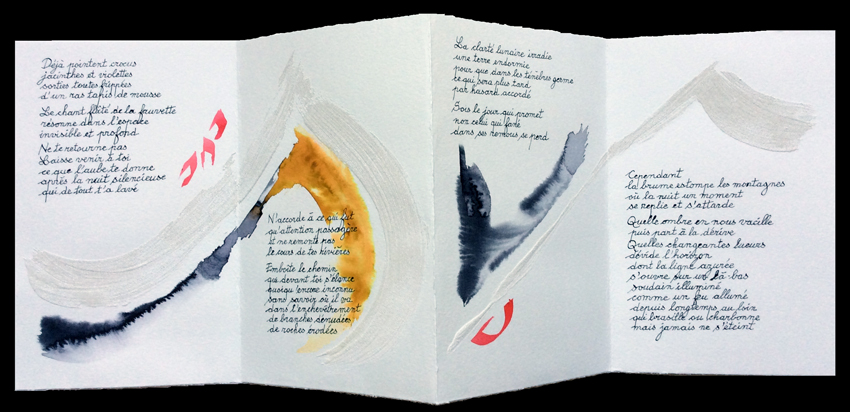 Déjà pointent crocus
jacinthes et violettes
sorties toutes frippées
d'un ras tapis de mousse
Le chant flûté de la fauvette
résonne dans l'espace
invisible et profond
Ne te retourne pas
Laisse venir à toi
ce que l'aube te donne
après la nuit silencieuse
qui de tout t'a lavé
N'accorde à ce qui fut
qu'attention passagère
et ne remonte pas
le cours de tes rivières
Emboîte le chemin
qui devant toi s'élance
quoiqu'encore inconnu
sans savoir où il va
dans l'enchevêtrement
de branches dénudées
de roches érodées
La clarté lunaire irradie
une terre endormie
pour que dans les ténèbres germe
ce qui sera plus tard
par hasard accordé
Sois le jour qui promet
non celui qui fane
dans ses remous se perd
Cependant
la brume estompe les montagnes
où la nuit un moment
se replie et s'attarde
Quelle ombre en nous vacille
puis part à la dérive
Quelles changeantes lueurs
dévide l'horizon
dont la ligne azurée
s'ouvre sur un là-bas
soudain illuminé
comme un feu allumé
depuis longtemps au loin
qui brasille ou charbonne
mais jamais ne s'éteint